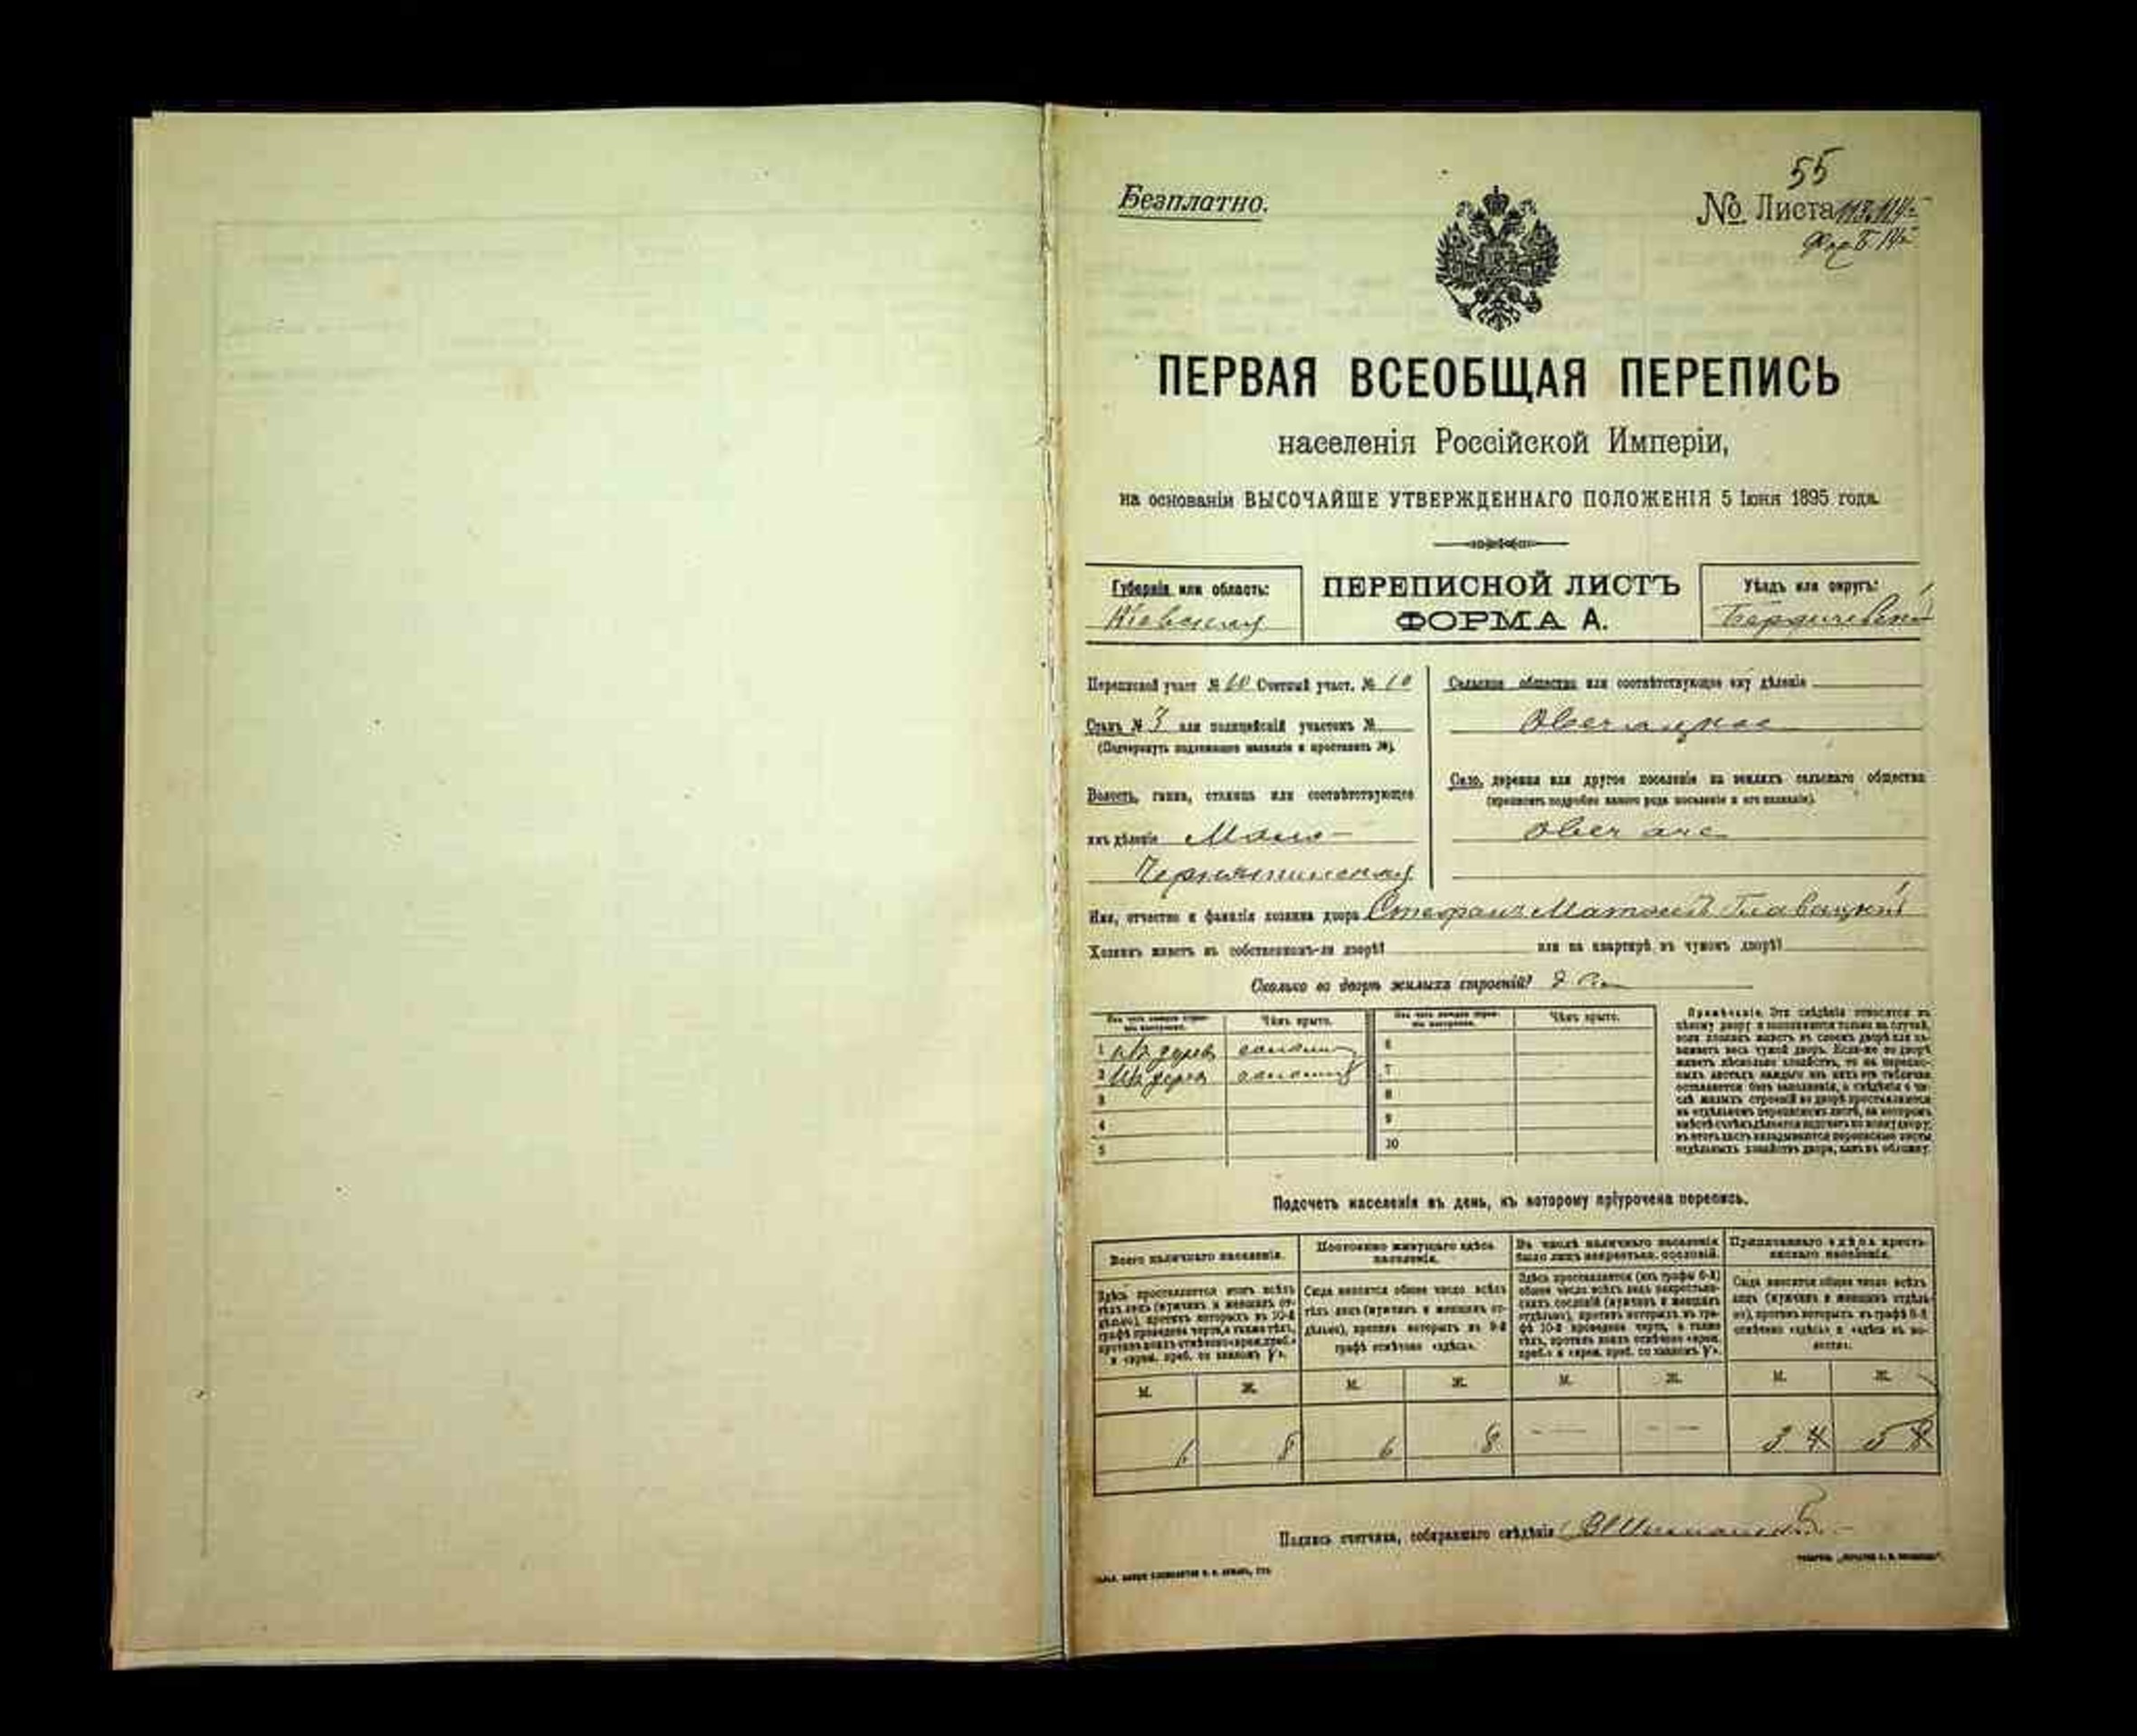 55
Безплатно.
№ Листа 113, 114
ПЕРВАЯ ВСЕОБЩАЯ ПЕРЕПИСЬ
населенія Россійской Имперіи,
на основаніи ВЫСОЧАЙШЕ УТВЕРЖДЕННАГО ПОЛОЖЕНІЯ 5 Іюня 1895 года.
Губернія или область:
Кіевская
ПЕРЕПИСНОЙ ЛИСТЪ
ФОРМА А.
Уѣздъ или округъ:
Бердичевскій
Переписной участ. № 10 Счетный участ. № 10
Станъ № 3 или полицейскій участокъ №
(Подчеркнуть подлежащее названіе и проставить №).
Волость, гмина, станица или соотвѣтствующее
имъ дѣленіе Мало-
Чернятинская
Сельское общество или соотвѣтствующее ему дѣленіе
Овечацкое
Село, деревня или другое поселеніе на земляхъ сельскаго общества
(прописать подробно какого рода поселеніе и его названіе).
Овечаче
Имя, отчество и фамилія хозяина двора Стефанъ Главацкій
Хозяинъ живетъ въ собственномъ-ли дворѣ? или на квартирѣ въ чужомъ дворѣ?
Сколько во дворѣ жилыхъ строеній? 2
Изъ чего каждое строеніе построено. Чѣмъ крыто.
Изъ чего каждое строеніе построено. Чѣмъ крыто.
1 изъ дерев соломой 6
2 изъ дерев соломой 7
3 8
4 9
5 10
Примѣчаніе. Эти свѣдѣнія относятся къ
цѣлому двору и заполняются только въ случаѣ,
если хозяинъ живетъ въ своемъ дворѣ или за-
нимаетъ весь чужой дворъ. Если-же во дворѣ
живетъ нѣсколько хозяйствъ, то на перепис-
ныхъ листахъ каждаго изъ нихъ эта табличка
оставляется безъ заполненія, а свѣдѣнія о чи-
слѣ жилыхъ строеній во дворѣ проставляются
на отдѣльномъ переписномъ листѣ, на которомъ
вмѣстѣ съ тѣмъ дѣлается подсчетъ по всему двору;
въ этотъ листъ вкладываются переписные листы
отдѣльныхъ хозяйствъ двора, какъ въ обложку.
Подсчетъ населенія въ день, къ которому пріурочена перепись.
Всего наличнаго населенія.
Здѣсь проставляется итогъ всѣхъ
тѣхъ лицъ (мужчинъ и женщинъ от-
дѣльно), противъ которыхъ въ 10-й
графѣ проведена черта, а также тѣхъ,
противъ коихъ отмѣчено «врем. преб.»
и «врем. преб. со знакомъ
Постоянно живущаго здѣсь
населенія.
Сюда вносится общее число всѣхъ
тѣхъ лицъ (мужчинъ и женщинъ от-
дѣльно), противъ которыхъ въ 9-й
графѣ отмѣчено «здѣсь».
Въ числѣ наличнаго населенія
было лицъ некрестьян. сословій.
Здѣсь проставляется (изъ графы 6-й)
общее число всѣхъ лицъ некрестьян-
скихъ сословій (мужчинъ и женщинъ
отдѣльно), противъ которыхъ въ гра-
фѣ 10-й проведена черта, а также
тѣхъ, противъ коихъ отмѣчено «врем.
преб.» и «врем. преб. со знакомъ
Приписаннаго здѣсь кресть-
янскаго населенія.
Сюда вносится общее число всѣхъ
лицъ (мужчинъ и женщинъ отдѣль-
но), противъ которыхъ въ графѣ 8-й
отмѣчено «здѣсь» и «здѣсь въ во-
лости».
М. Ж. М. Ж. М. Ж. М. Ж.
6 8 6 8 — — 3 4 5 8
Подпись счетчика, собиравшаго свѣдѣнія